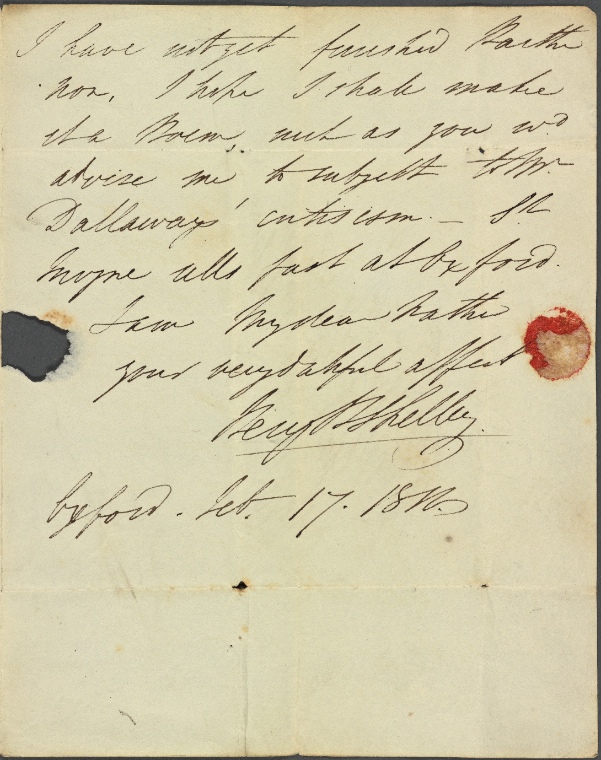 I have not yet finished Parthe
non, I hope I shall make
it a Poem, not as you wd
advise me to subject to Mr
Dallaways' criticism. — St
Irvyne sells fast at Oxford.
I am My dear Father
your very dutiful affect
Percy B Shelley
Oxford. Feb. 17. 1811.